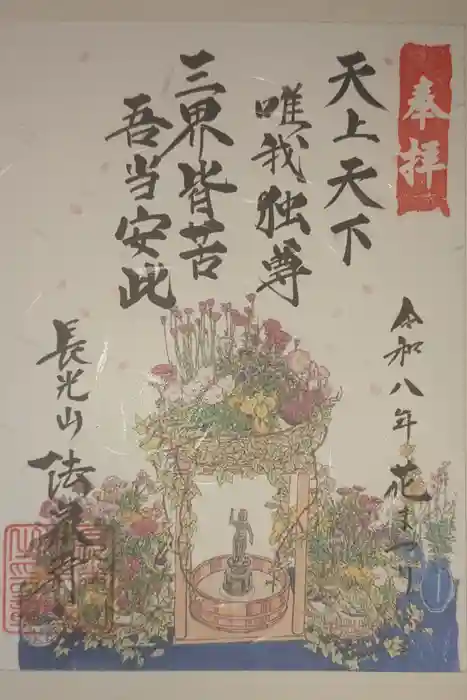 奉拝
令和八年 花まつり
天上天下
唯我独尊
三界皆苦
吾当安此
長光山 法花寺